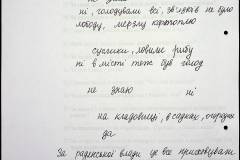 ні, голодували всі, зв'язків не було
лободу, мерзлу картоплю
сусліки, ловили рибу
ні в місті теж був голод
не знаю ні
на кладовищі, в садках, очередах
да
За радянської влади це все приховували